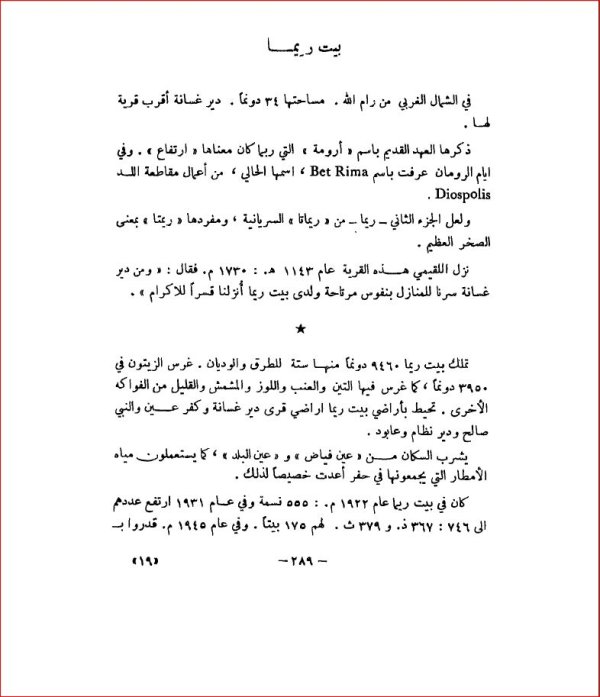 بيت ريمـــا
في الشمال الغربي من رام الله . مساحتها ٣٤ دونماً . دير غسانة أقرب قرية
لهـا .
ذكرها العهد القديم باسم « أرومة » التي ربما كان معناها « ارتفاع » . وفي
ايام الرومان عرفت باسم Bet Rima ، اسمها الحالي ، من أعمال مقاطعة اللـد
Diospolis .
ولعل الجزء الثاني ــ ريما ــ من « ريماتا » السريانية ، ومفردها « ريمتا » بمعنى
الصخر العظيم .
نزل اللقيمي هـــذه القرية عام ١١٤٣ هـ . : ١٧٣٠ م. فقال : « ومن دير
غسانة سرنا للمنازل بنفوس مرتاحة ولدى بيت ريما أُنزلنا قسراً للاكرام » .
★
تملك بيت ريما ٩٤٦٠ دونماً منهـا ستة للطرق والوديان . غرس الزيتون في
٣٩٥٠ دونماً ، كما غرس فيها التين والعنب واللوز والمشمش والقليل من الفواكه
الأخرى . تحيط بأراضي بيت ريما اراضي قرى دير غسانة وكفر عـــين والنبي
صالح ودير نظام وعابود .
يشرب السكان مـــن « عين فياض » و « عين البلد » ، كما يستعملون مياه
الأمطار التي يجمعونها في حفر أعدت خصيصاً لذلك .
كان في بيت ريما عام ١٩٢٢ م. : ٥٥٥ نسمة وفي عـــام ١٩٣١ ارتفع عددهم
الى ٧٤٦ : ٣٦٧ ذ. و ٣٧٩ ث . لهم ١٧٥ بيتاً . وفي عام ١٩٤٥ م. قدروا بـ
– ٢٨٩ –
«١٩»